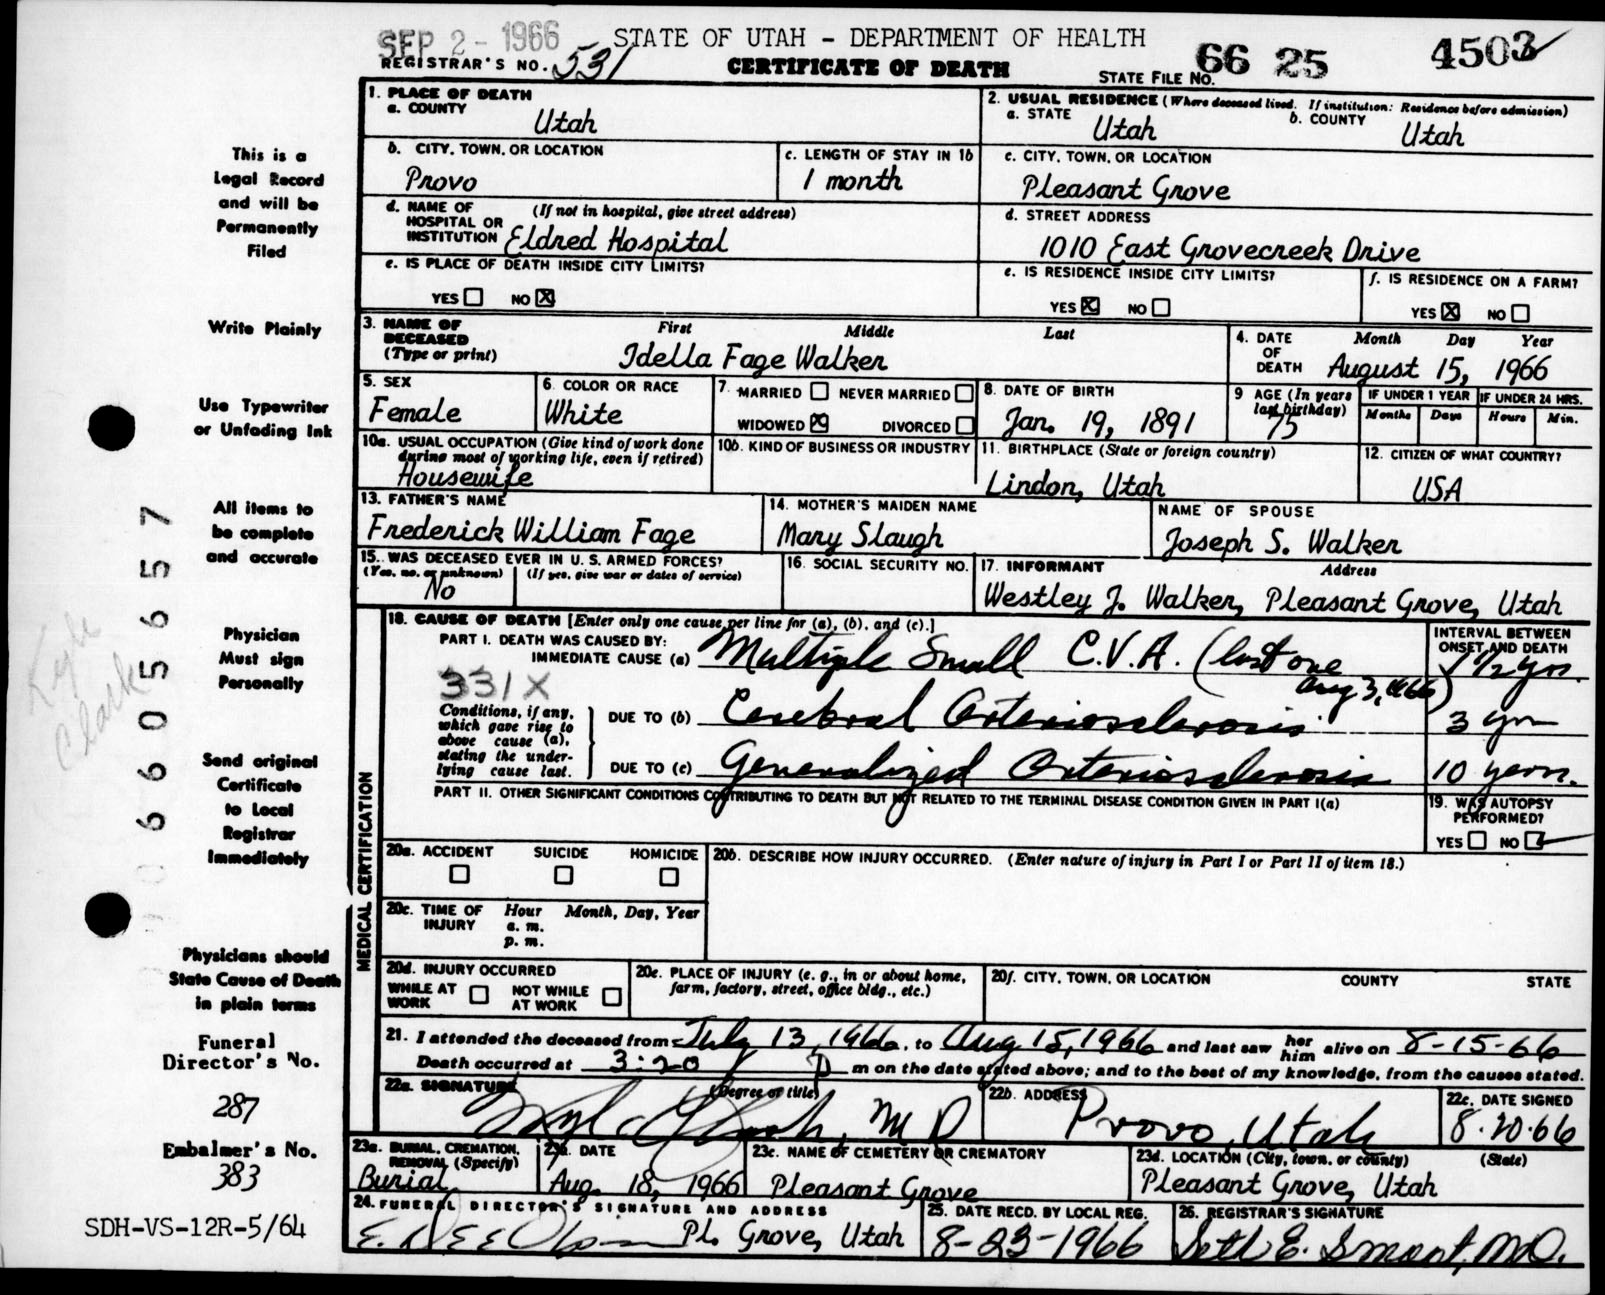 SEP 2- 1966
STATE OF UTAH - DEPARTMENT OF HEALTH
REGISTRAR'S NO. 531
CERTIFICATE OF DEATH
STATE FILE NO. 66 25 4503
1. PLACE OF DEATH
a. COUNTY
Utah
2. USUAL RESIDENCE (Where deceased lived. If institution: Residence before admission)
a. STATE
Utah
b. COUNTY
Utah
b. CITY, TOWN, OR LOCATION
Provo
c. LENGTH OF STAY IN 1b
1 month
c. CITY, TOWN, OR LOCATION
Pleasant Grove
d. NAME OF HOSPITAL OR INSTITUTION (If not in hospital, give street address)
Eldred Hospital
d. STREET ADDRESS
1010 East Grovecreek Drive
e. IS PLACE OF DEATH INSIDE CITY LIMITS?
YES ☐ NO ☒
e. IS RESIDENCE INSIDE CITY LIMITS?
YES ☒ NO ☐
f. IS RESIDENCE ON A FARM?
YES ☒ NO ☐
3. NAME OF DECEASED (Type or print)
First Middle Last
Idella Fage Walker
4. DATE OF DEATH
Month Day Year
August 15, 1966
5. SEX
Female
6. COLOR OR RACE
White
7. MARRIED ☐ NEVER MARRIED ☐
WIDOWED ☒ DIVORCED ☐
8. DATE OF BIRTH
Jan. 19, 1891
9 AGE (In years last birthday)
75
IF UNDER 1 YEAR
Months Days
IF UNDER 24 HRS.
Hours Min.
10a. USUAL OCCUPATION (Give kind of work done during most of working life, even if retired)
Housewife
10b. KIND OF BUSINESS OR INDUSTRY
11. BIRTHPLACE (State or foreign country)
Lindon, Utah
12. CITIZEN OF WHAT COUNTRY?
USA
13. FATHER'S NAME
Frederick William Fage
14. MOTHER'S MAIDEN NAME
Mary Slaugh
NAME OF SPOUSE
Joseph S. Walker
15. WAS DECEASED EVER IN U. S. ARMED FORCES?
(Yes, no, or unknown) (If yes, give war or dates of service)
No
16. SOCIAL SECURITY NO.
17. INFORMANT Address
Westley J. Walker, Pleasant Grove, Utah
MEDICAL CERTIFICATION
18. CAUSE OF DEATH [Enter only one cause per line for (a), (b), and (c).]
PART I. DEATH WAS CAUSED BY:
IMMEDIATE CAUSE (a) Multiple Small C.V.A. (last one
Aug 3, 1966)
INTERVAL BETWEEN ONSET AND DEATH
1 1/2 yrs.
331X
Conditions, if any, which gave rise to above cause (a), stating the under-lying cause last.
DUE TO (b) Cerebral Arteriosclerosis
3 yrs
DUE TO (c) Generalized Arteriosclerosis
10 years.
PART II. OTHER SIGNIFICANT CONDITIONS CONTRIBUTING TO DEATH BUT NOT RELATED TO THE TERMINAL DISEASE CONDITION GIVEN IN PART I(a)
19. WAS AUTOPSY PERFORMED?
YES ☐ NO ☑
20a. ACCIDENT SUICIDE HOMICIDE
20b. DESCRIBE HOW INJURY OCCURRED. (Enter nature of injury in Part I or Part II of item 18.)
20c. TIME OF INJURY
Hour Month, Day, Year
a. m.
p. m.
20d. INJURY OCCURRED
WHILE AT WORK ☐ NOT WHILE AT WORK ☐
20e. PLACE OF INJURY (e. g., in or about home, farm, factory, street, office bldg., etc.)
20f. CITY, TOWN, OR LOCATION COUNTY STATE
21. I attended the deceased from July 13, 1966, to Aug 15, 1966 and last saw her him alive on 8-15-66
Death occurred at 3:20 P m on the date stated above; and to the best of my knowledge, from the causes stated.
22a. SIGNATURE (Degree or title)
Lyle Clark, MD
22b. ADDRESS
Provo, Utah
22c. DATE SIGNED
8-20-66
23a. BURIAL, CREMATION, REMOVAL (Specify)
Burial
23b. DATE
Aug. 18, 1966
23c. NAME OF CEMETERY OR CREMATORY
Pleasant Grove
23d. LOCATION (City, town, or county) (State)
Pleasant Grove, Utah
24. FUNERAL DIRECTOR'S SIGNATURE AND ADDRESS
Pl. Grove, Utah
25. DATE RECD. BY LOCAL REG.
8-23-1966
26. REGISTRAR'S SIGNATURE
Seth E. Smoot, M.D.
This is a
Legal Record
and will be
Permanently
Filed
Write Plainly
Use Typewriter
or Unfading Ink
All items to
be complete
and accurate
Physician
Must sign
Personally
Send original
Certificate
to Local
Registrar
Immediately
Physicians should
State Cause of Death
in plain terms
Funeral
Director's No.
287
Embalmer's No.
383
SDH-VS-12R-5/64
Lyle
Clark
6605657